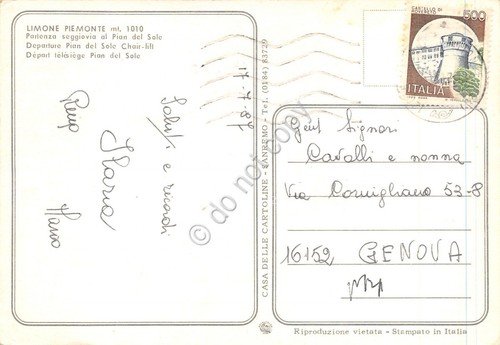 LIMONE PIEMONTE mt. 1010
Partenza seggiovia al Pian del Sole
Departure Pian del Sole Chair-lift
Depart télésiège Pian del Sole
Saluti e ricordi
Ilaria
Piero
Marco
CASA DELLE CARTOLINE - SANREMO - Tel. (0184) 83729
CASTELLO DI
ROVERETO
500
ITALIA
Gent Signori
Cavalli e nonna
Via Cornigliano 53-8
16152 GENOVA
Riproduzione vietata - Stampato in Italia
do not copy